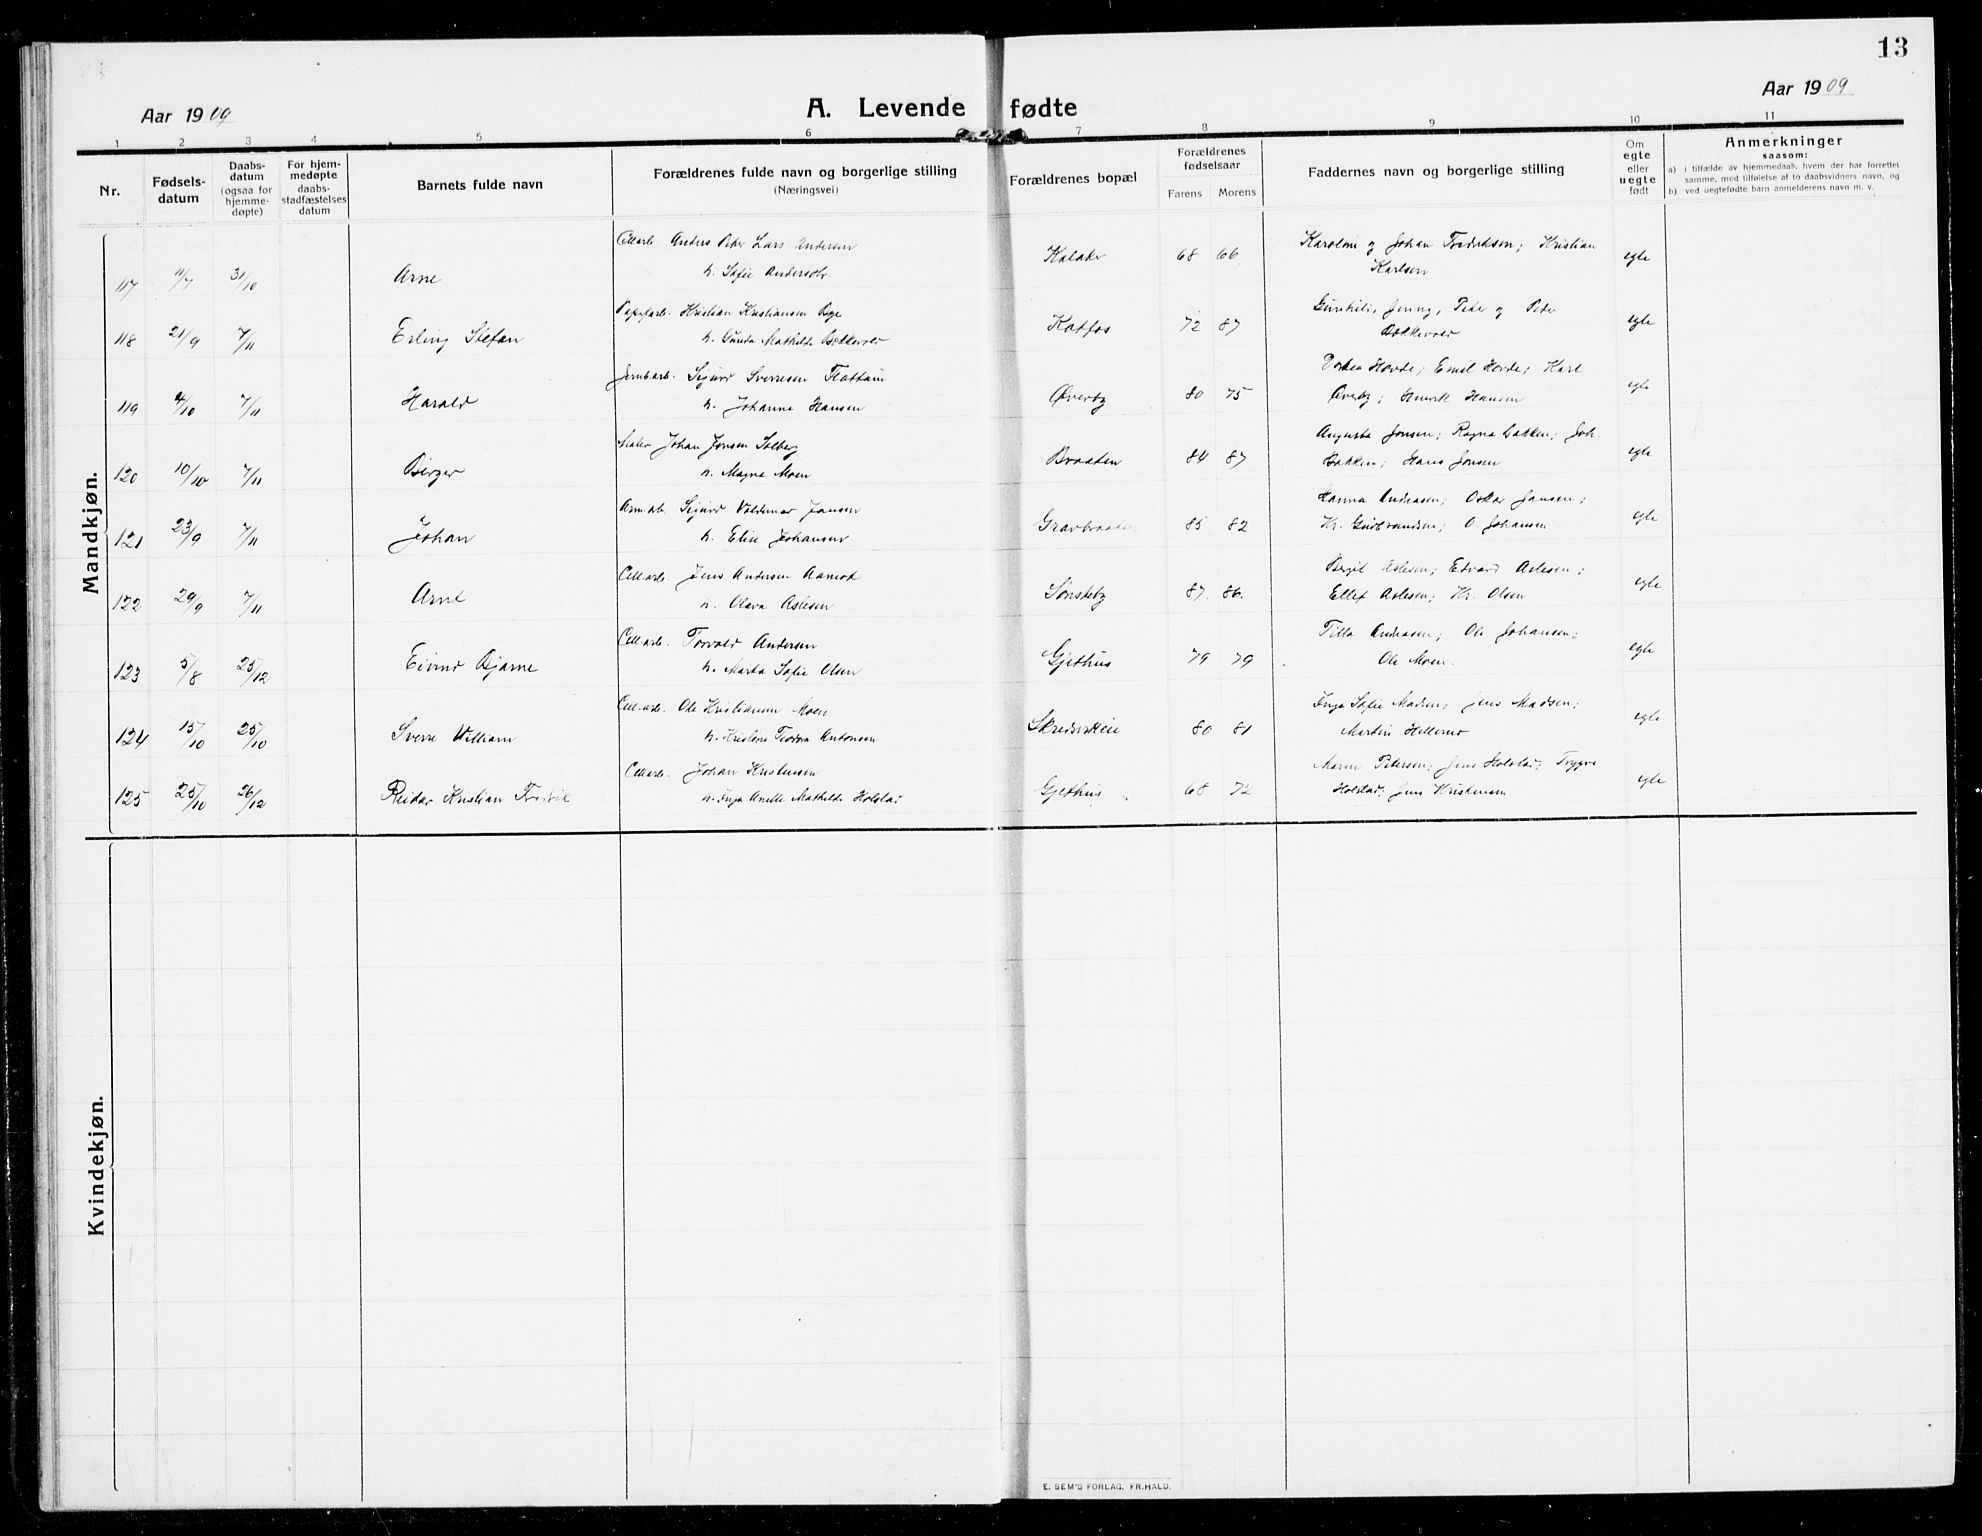 13
Aar 1909
A. Levende fødte
Aar 1909
1 2 3 4 5 6 7 8 9 10 11
Nr.
Fødsels-
datum
Daabs-
datum
(ogsaa for
hjemme-
døpte)
For hjem-
medøpte
daabs-
stadfæstelses
datum
Barnets fulde navn
Forældrenes fulde navn og borgerlige stilling
(Næringsvei)
Forældrenes bopæl
Forældrenes
fødselsaar
Farens Morens
Faddernes navn og borgerlige stilling
Om
egte
eller
uegte
født
Anmerkninger
saasom:
a) i tilfælde av hjemmedaab, hvem der har forrettet
samme, med tilføielse af to daabsvidners navn, og
b) ved uegtefødte barn anmelderens navn m. v.
Mandkjøn.
Cell.arb. Anders Peder Lars Andersen
Karoline og Johan Fredriksen; Kristian
117 11/7 31/10 Arne h. Sofie Andersdr. Kalaker 68 66 Karlsen egte
Papirarb. Kristian Kristiansen
Gunhild, Jenny, Peder og Peder
118 21/9 7/11 Erling Stefan h. Gunda Mathilde Bakkerud Katfos 72 87 Bakkerud egte
Jernb.arb. Sigurd Sverresen
Hovde; Emil Hovde; Karl
119 4/10 7/11 Harald h. Johanne Hansen Øverby 80 75 Øverby; Henrik Hansen egte
Maler Johan Jonsen Solberg
Augusta Jonsen; Ragna Bakken; Joh.
120 10/10 7/11 Birger h. Magna Moen Braaten 84 87 Bakken; Hans Jonsen egte
Sigurd Valdemar Jansen
Hanna Andreasen; Oskar Jansen;
121 23/9 7/11 Johan h. Elise Johansen Gravbraaten 85 82 Kr. Gudbrandsen; O. Johansen egte
Cell.arb. Jens Andersen Aamot
Bergit Aslesen; Edvard Aslesen;
122 29/9 7/11 Arne h. Olava Aslesen Sønsteby 87. 86. Ellef Aslesen; Kr. Olsen egte
Cell.arb. Torvald Andersen
Tilla Andreasen; Ole Johansen;
123 5/8 25/12 Eivind Bjarne h. Marta Sofie Olsen Gjethus 79 79 Ole Moen. egte
Cell.arb. Ole Kristiansen Moen
Inga Sofie Madsen; Jens Madsen;
124 15/10 25/10 Sverre William h. Kristine Teodora Antonsen Skredsvikeie 80 81 Martin Hellerud egte
Cell.arb. Johan Kristensen
Maren Petersen; Jens Holstad; Trygve
125 25/10 26/12 Reidar Kristian Fredrik h. Inga Anette Mathilde Holstad Gjethus 68 72 Holstad; Jens Kristensen egte
Kvindekjøn.
E. SEM'S FORLAG, FR.HALD.